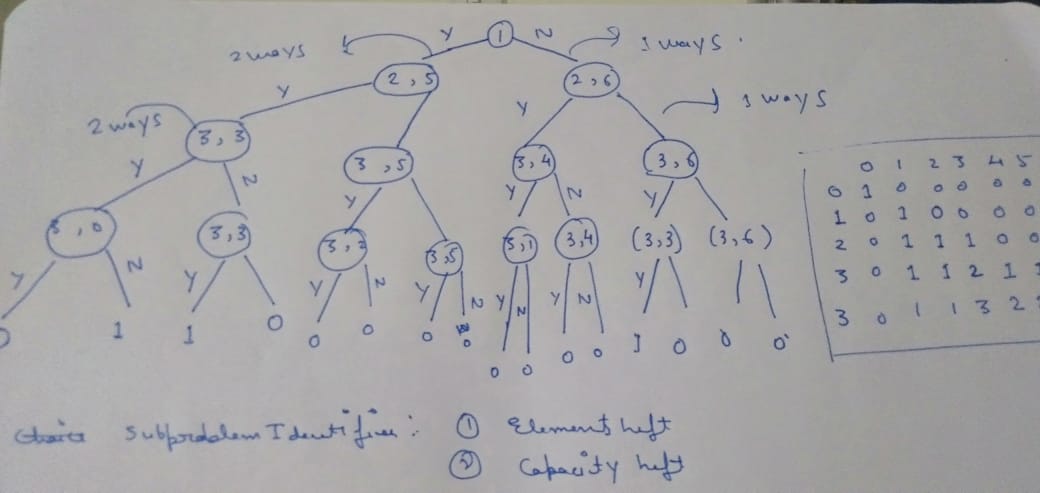 Y 1 N
2 ways 3 ways
2,5 2,6
Y Y 3 ways
2 ways
3,3 3,5 3,4 3,6
Y N Y Y N Y
3,0 3,3 3,2 3,5 3,1 3,4 (3,3) (3,6)
Y N Y Y N Y N Y N Y N Y
0 1 1 0 0 0 0 0 0 0 0 0 1 0 0 0
0 1 2 3 4 5
0 1 0 0 0 0 0
1 0 1 0 0 0 0
2 0 1 1 1 0 0
3 0 1 1 2 1 1
3 0 1 1 3 2
Subproblem Identifier: 1 Elements left
2 Capacity left